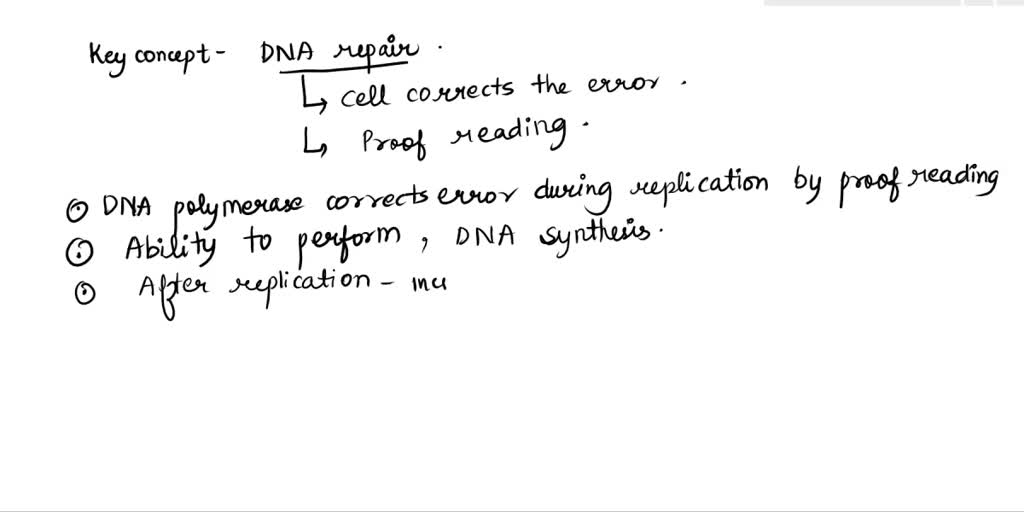 Key concept - DNA repair .
↳ Cell corrects the error .
↳ Proof reading .
⊙ DNA polymerase corrects error during replication by proof reading
⊙ Ability to perform , DNA synthesis .
⊙ After replication -